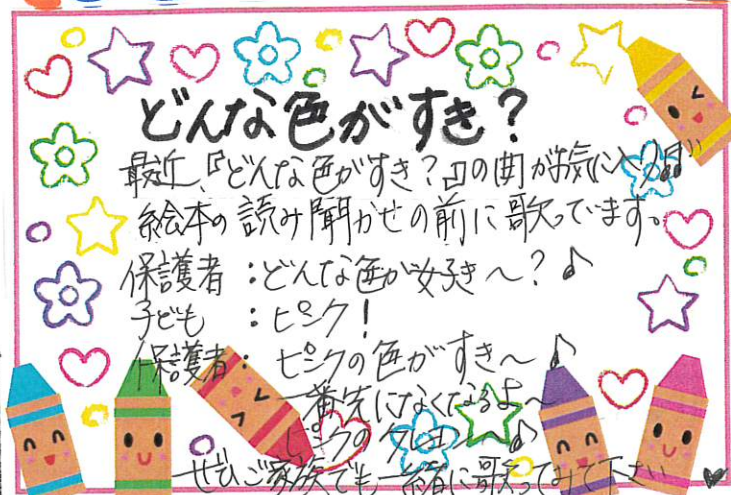 どんな色がすき？
最近、『どんな色がすき？』の曲がお気に入り♪
絵本の読み聞かせの前に歌っています。
保護者：どんな色が好き～？♪
子ども：ピンク！
保護者：ピンクの色がすき～♪
一番先になくなるよ～
ピンクのクレヨン～♪
ぜひご家族でも一緒に歌ってみて下さい♥